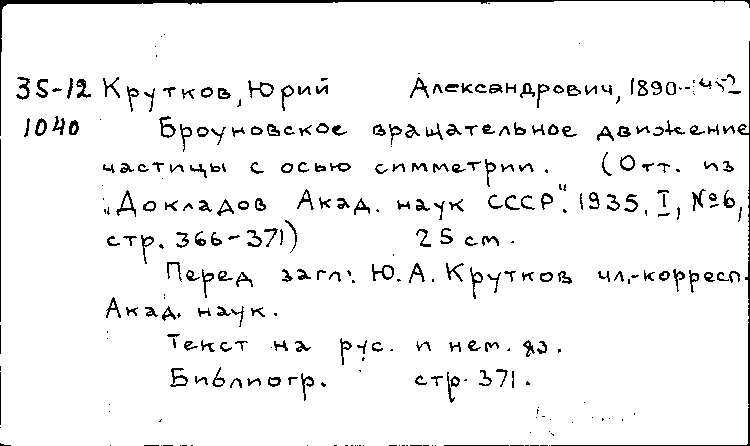 35-12 Крутков, Юрий Александрович, 1890-1952
1040 Броуновское вращательное движение
частицы с осью симметрии. (Отт. из
„Докладов Акад. наук СССР". 1935, I, №6,
стр. 366-371) 25 см.
Перед загл: Ю.А. Крутков чл.-корресп.
Акад. наук.
Текст на рус. и нем. яз.
Библиогр. стр. 371.